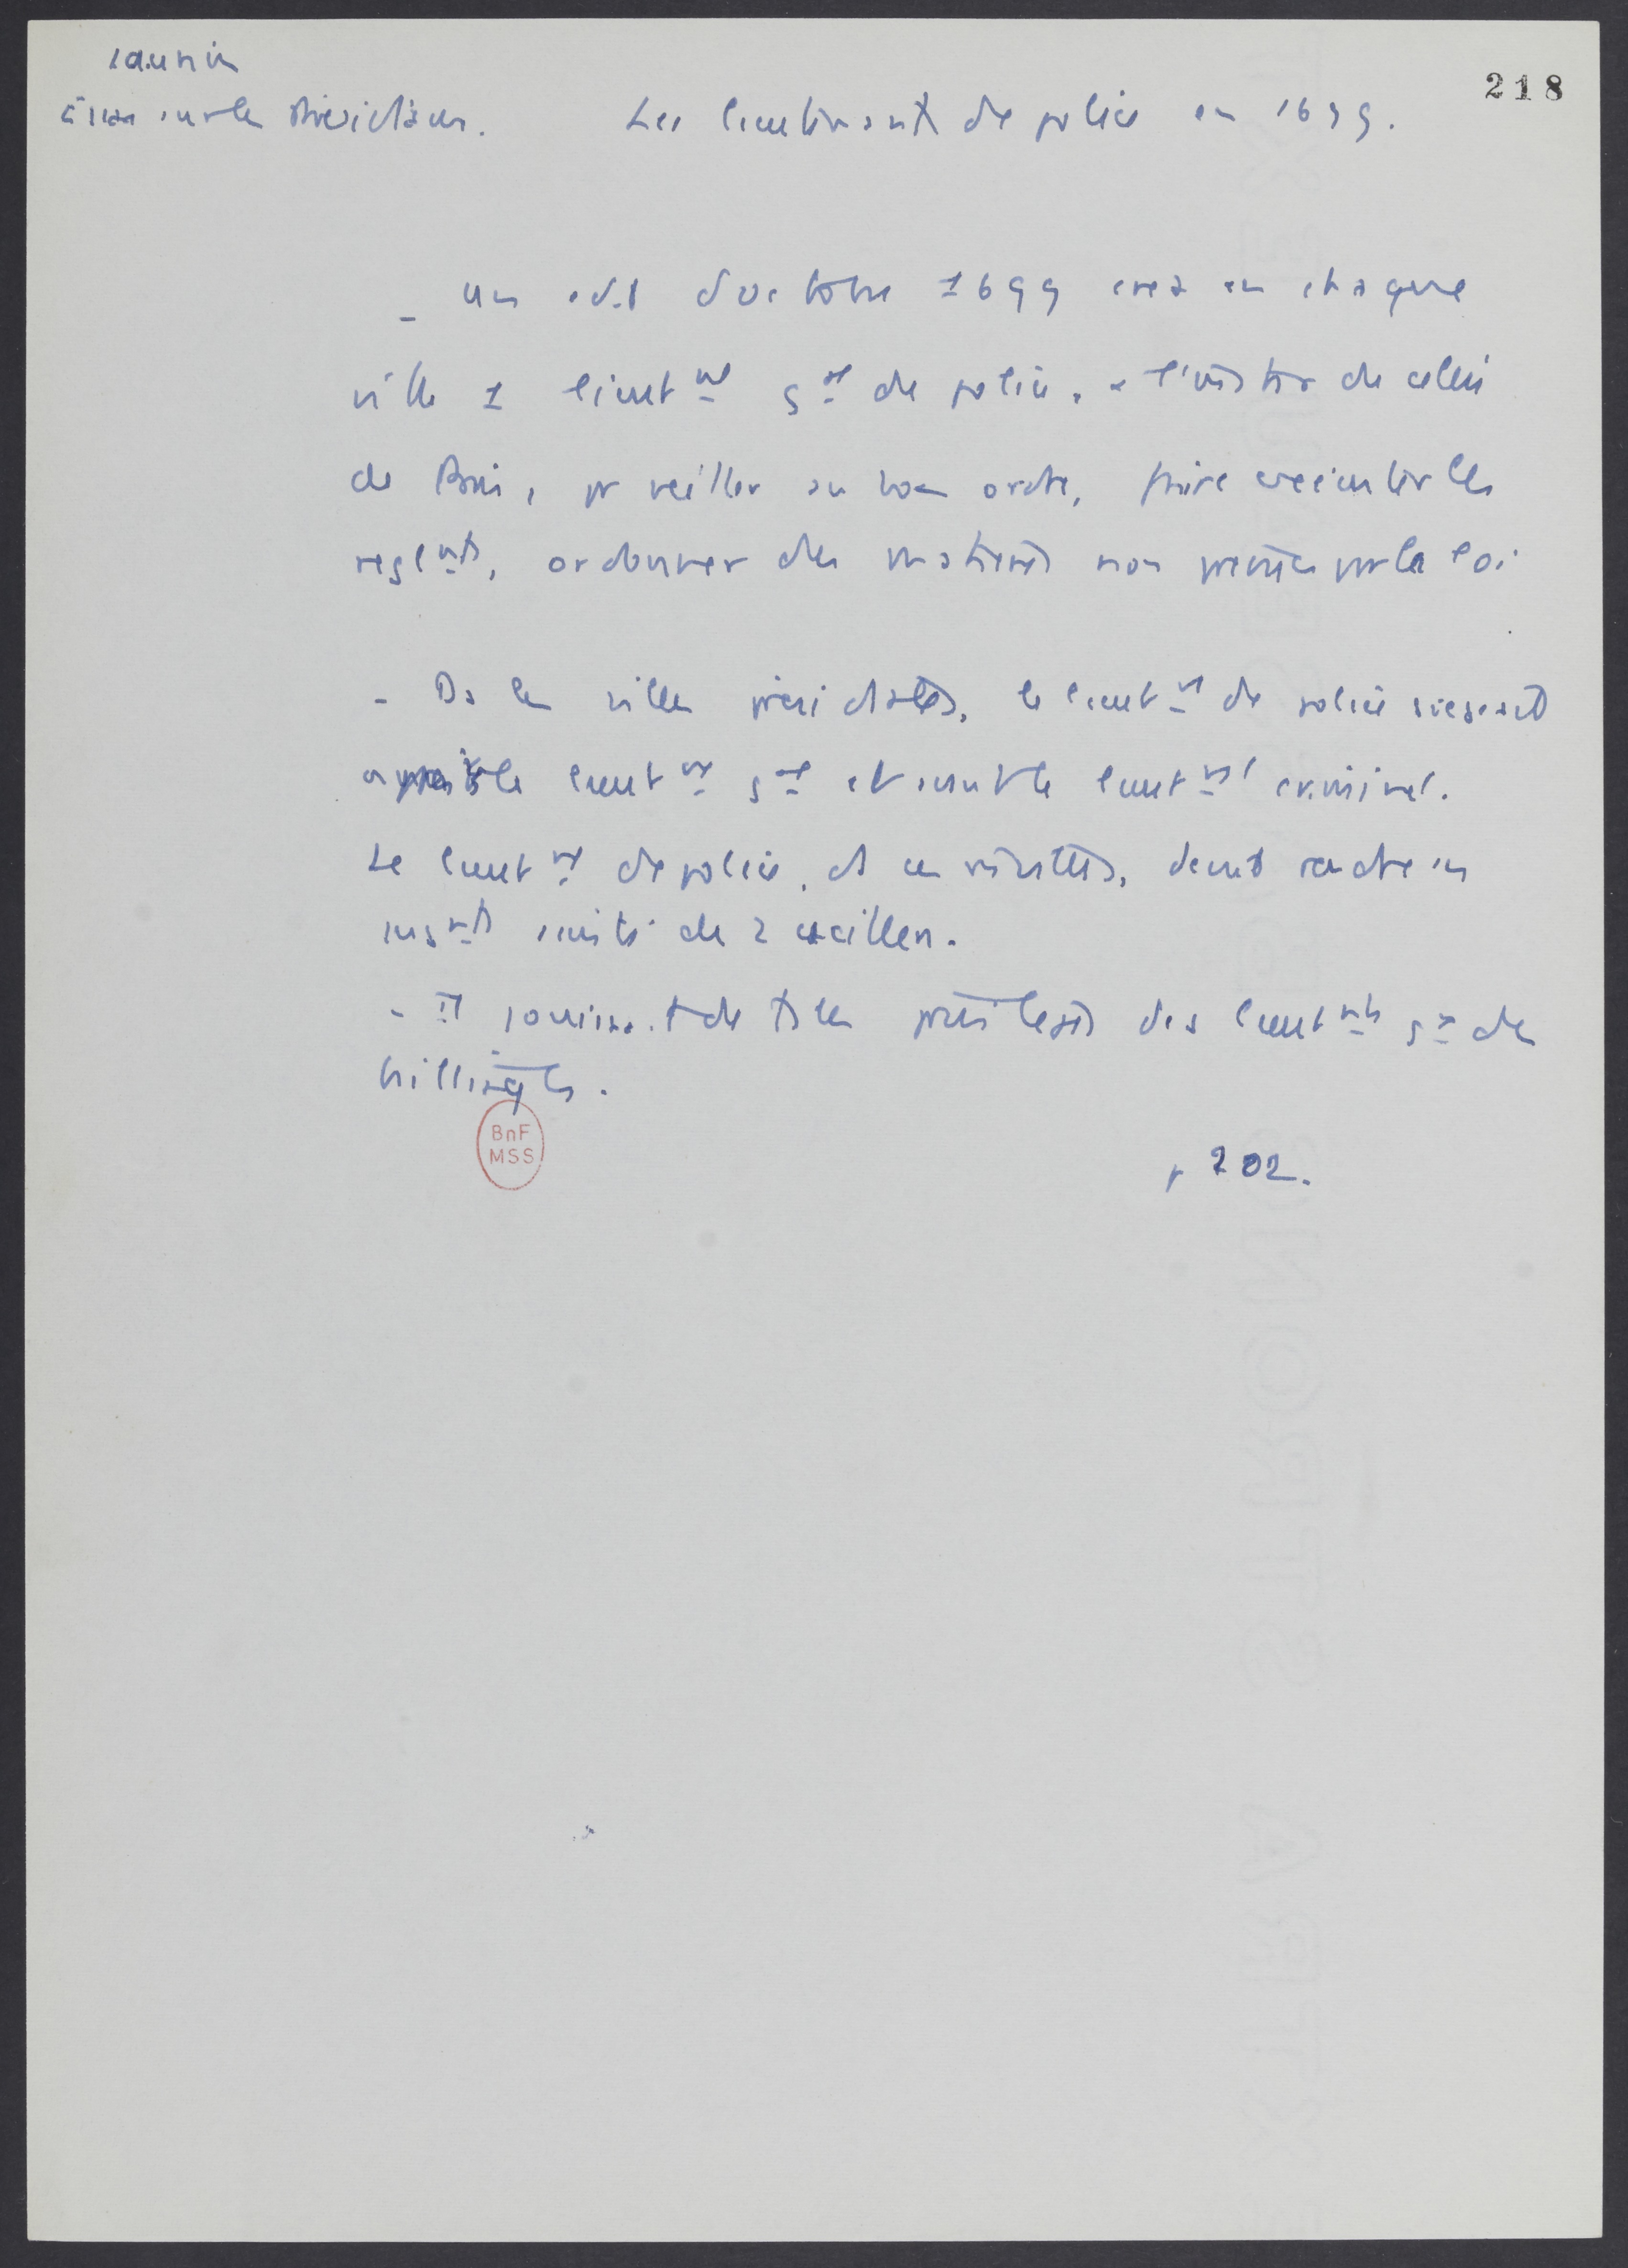 Laurain
Essai sur les Présidiaux.
Les lieutenants de police en 1699.
218
_ Un edit d'octobre 1699 crea en chaque
ville 1 lieut nt gal de police, à l'instar de celui
de Paris, pr veiller au bon ordre, faire executer les
reglnts, ordonner des matières non prévues par la loi
- Ds les villes présidiales, le lieut nt de police siegeait
après le lieut nt gal et avant le lieut nt criminel.
Le lieut nt de police, ds ces villes, devait rendre
jugnts de 2 conseillers.
- Il jouissait de ts les privilèges des lieut nts gx des
bailliages.
BnF
MSS
p 202.